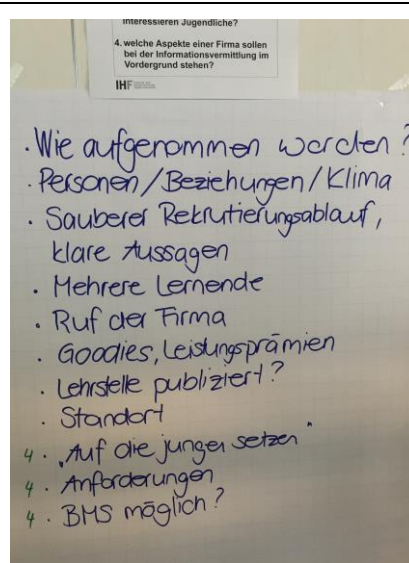 interessieren Jugendliche?
4. welche Aspekte einer Firma sollen
bei der Informationsvermittlung im
Vordergrund stehen?
IHF
· Wie aufgenommen werden?
· Personen/Beziehungen/Klima
· Sauberer Rekrutierungsablauf,
klare Aussagen
· Mehrere Lernende
· Ruf der Firma
· Goodies, Leistungsprämien
· Lehrstelle publiziert?
· Standort
4 · „Auf die jungen setzen"
4 · Anforderungen
4 · BMS möglich?